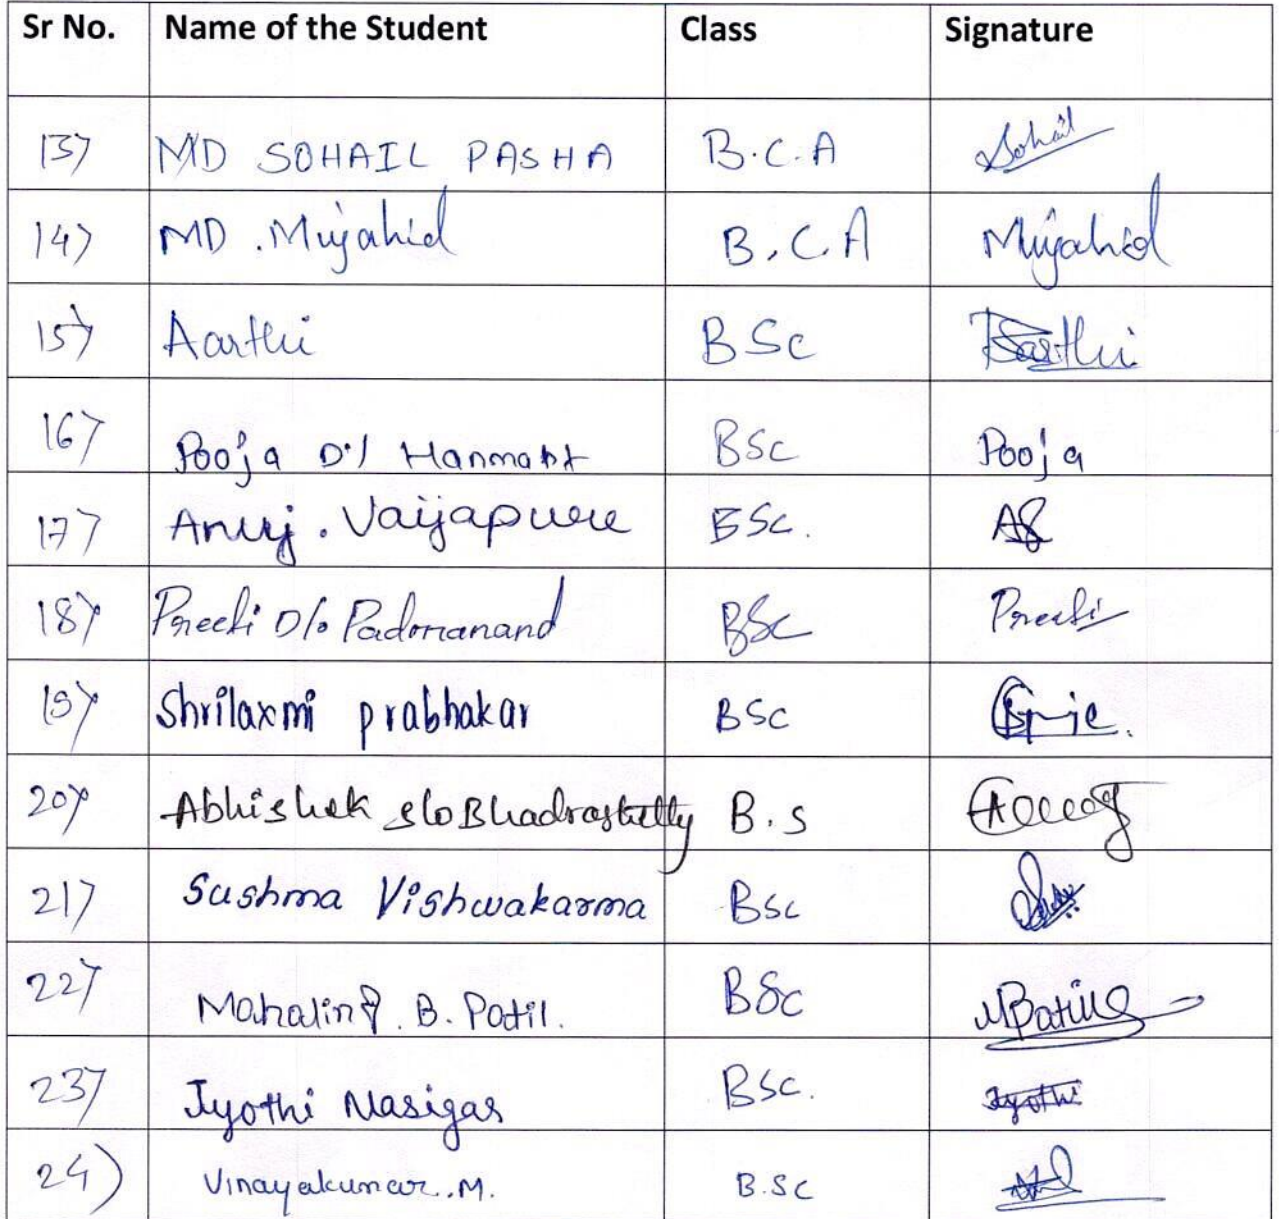 Sr No. Name of the Student Class Signature
13) MD SOHAIL PASHA B.C.A Sohail
14) MD. Mujahid B.C.A Mujahid
15) Aarthi BSc Aarthi
16) Pooja D/ Hanmant BSc Pooja
17) Anuj. Vaijapure BSc.
18) Preeti D/o Padmanand BSc Preeti
19) Shrilaxmi prabhakar BSc
20) Abhishek s/o Bhadrashetty B.S
21) Sushma Vishwakarma BSc
22) Mahaling. B. Patil. BSc MBPatil
23) Jyothi Nasigar BSc. Jyothi
24) Vinayakumar.M. B.Sc